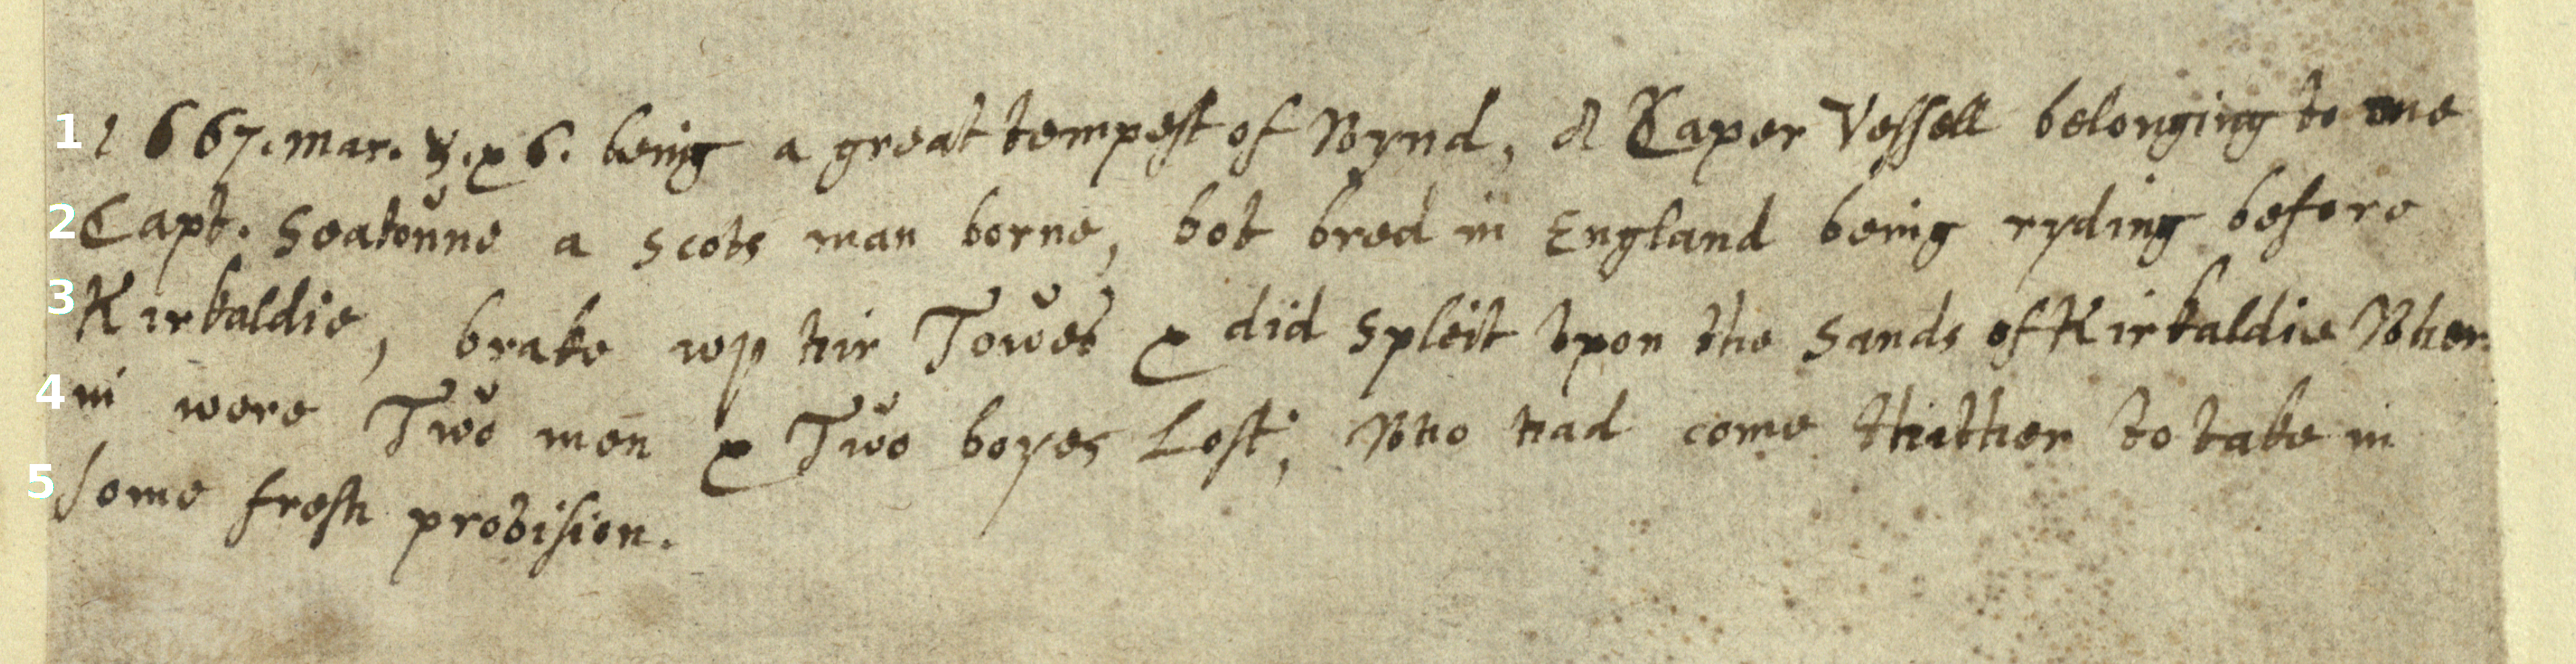 1667. Mar. 5. & 6. being a great tempest of Wynd, A Caper Vessell belonging to one
Capt. Seatoune a Scots man borne, bot bred in England being ryding before
Kirkaldie, brake wp hir Towes & did spleit vpon the Sands of Kirkaldie Wher
in were Two men & Two boyes Lost, Who had come thither to take in
some fresh provision.